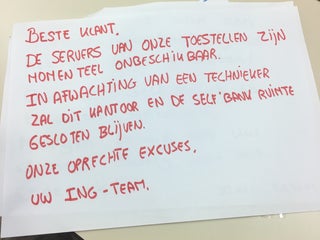 BESTE KLANT,
DE SERVERS VAN ONZE TOESTELLEN ZIJN
MOMENTEEL ONBESCHIKBAAR.
IN AFWACHTING VAN EEN TECHNIEKER
ZAL DIT KANTOOR EN DE SELF'BANK RUIMTE
GESLOTEN BLIJVEN.
ONZE OPRECHTE EXCUSES,
UW ING-TEAM.